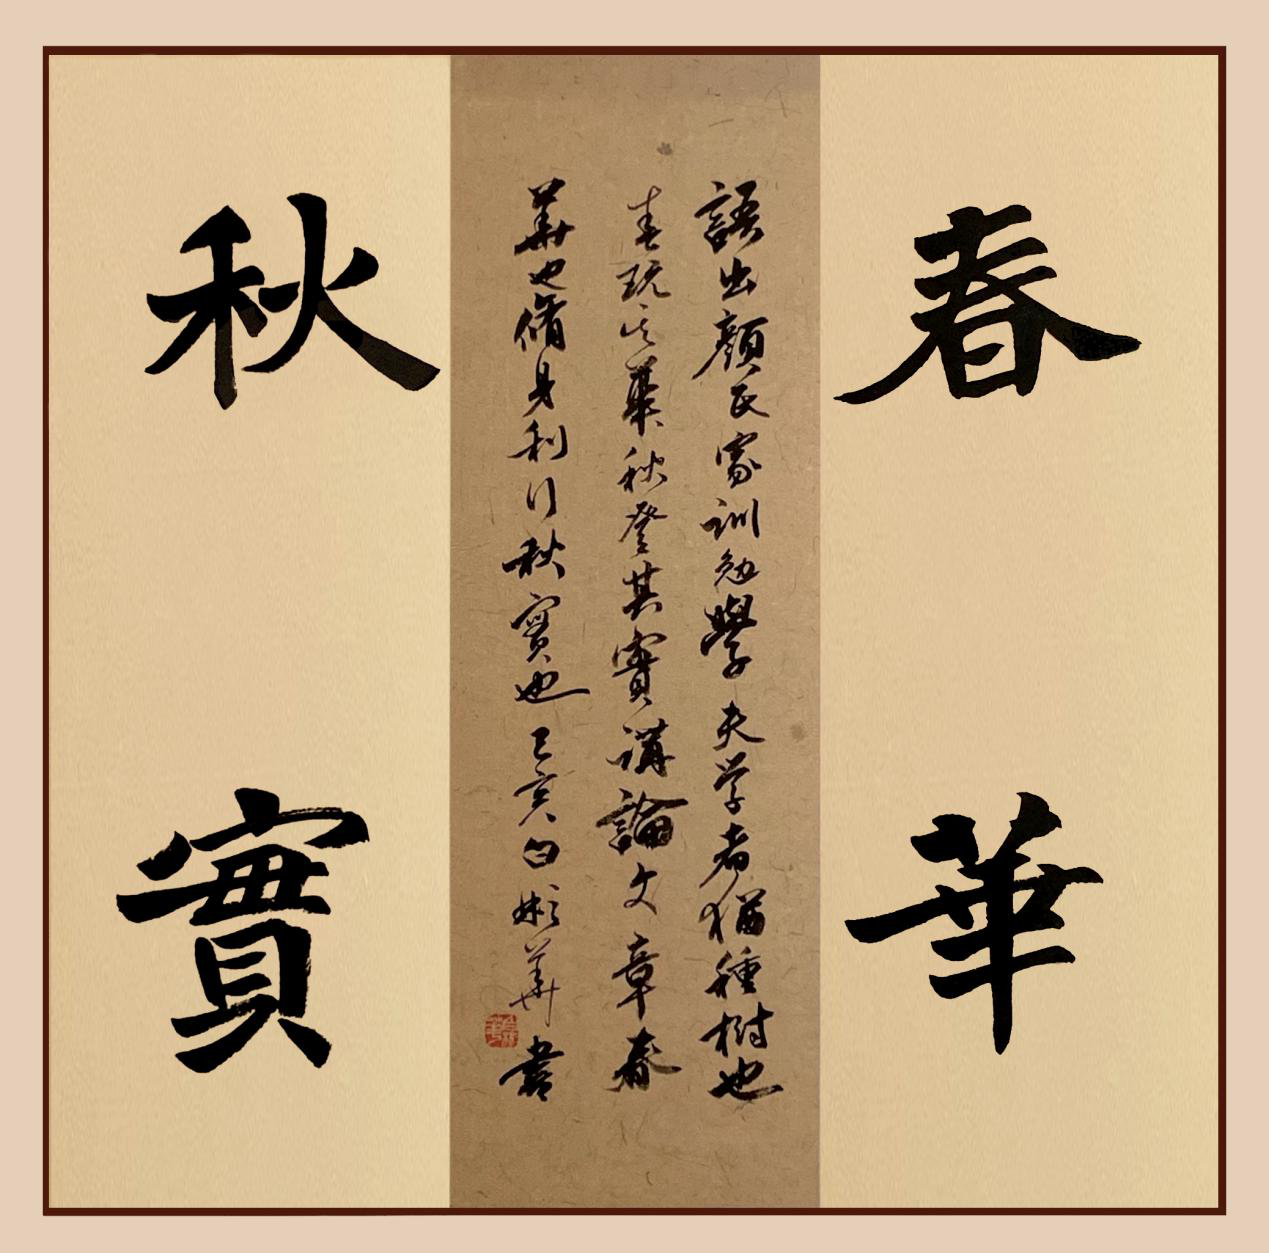 春華
語出顏氏家訓勉學夫学者猶種樹也
春玩其華秋登其實講論文章春
華也脩身利行秋實也己亥白彬華書
秋實